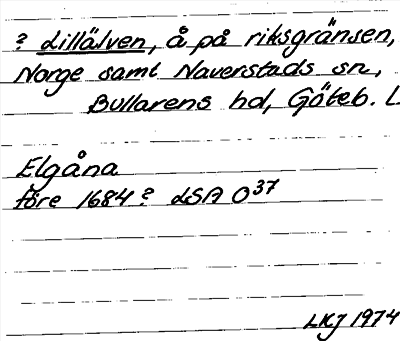 ? Lillälven, å på riksgränsen,
Norge samt Naverstads sn,
Bullarens hd, Göteb. L
Elgåna
före 1684? LSA O37
LKJ 1974